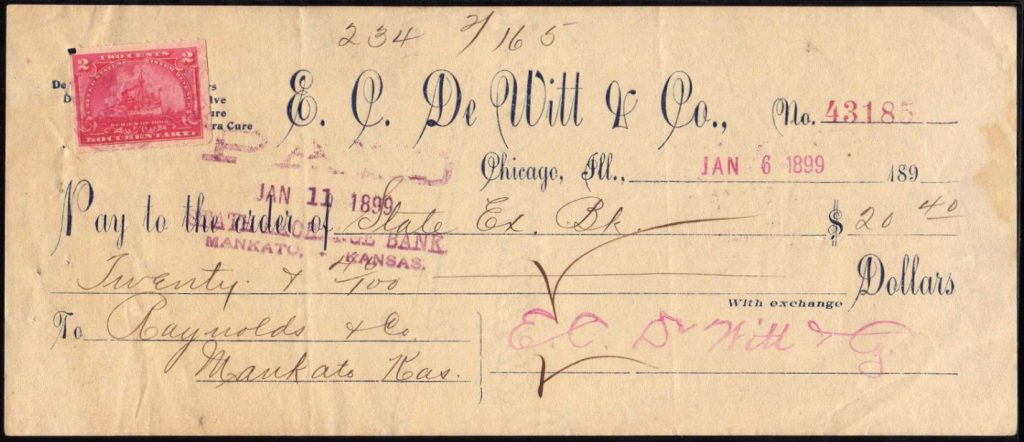 234 2/165
2 TWO CENTS 2
DOCUMENTARY.
E. C. De Witt & Co., No. 43185
ra Cure
PAID
Chicago, Ill., JAN 6 1899 189
JAN 11 1899
Pay to the order of State Ex. Bk. $ 20 40
STATE EXCHANGE BANK.
MANKATO, KANSAS.
Twenty & 40/100 Dollars
With exchange
To Raynolds & Co E. C. De Witt & Co
Mankato Kas.